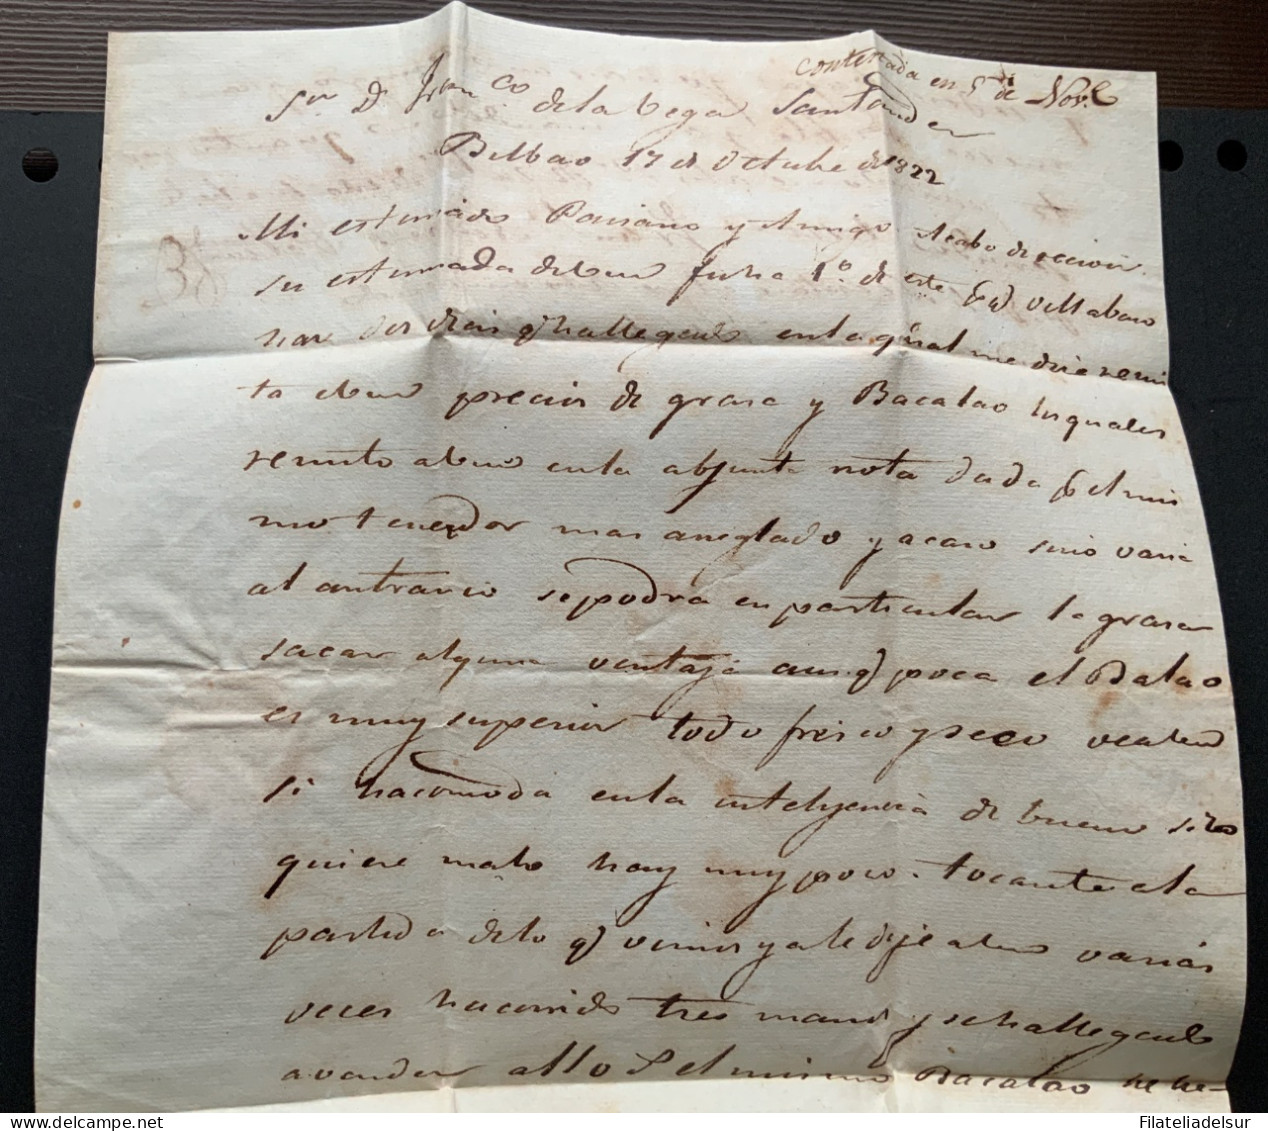 contestada en 5 de Nov.e
Sor Dn Franco de la Vega Santander
Bilbao 17 de Octubre de 1822
Mi estimado Paisano y Amigo Acabo de recivir
su estimada de Vmd fecha 1º. de este por Villabaso
hace dos dias q ha llegado en la qual me dice remi
ta a Vmd precios de grasa y Bacalao los quales
remito a Vmd en la adjunta nota dada por el mis
mo tenedor mas arreglado y acaso sino varia
al contrario se podra en particular la grasa
sacar alguna ventaja aunq poca el Balao
es muy superior todo fresco y seco vea Vmd
si hacomoda en la inteligencia de bueno si se
quiere malo hay muy poco. tocante a la
partida de lo q vimos ya le dije a Vmd varias
veces ha corrido tres manos y se ha llegado
a vender a 110 R el mismo Bacalao he he-
Filateliadelsur